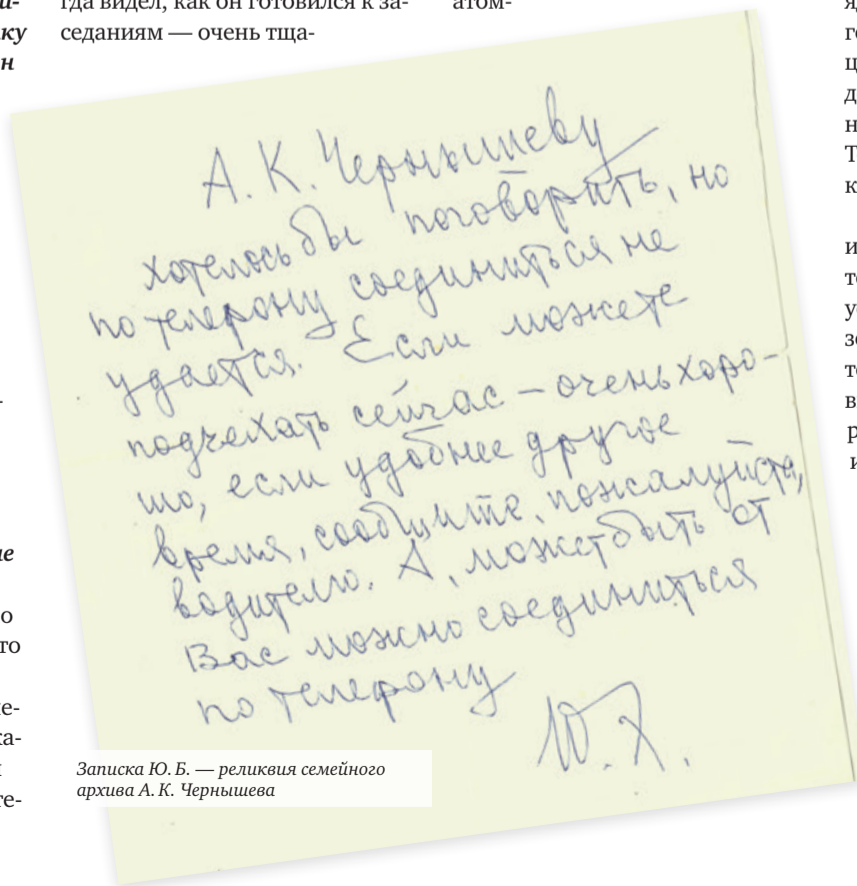 й-
гда видел, как он готовился к за-
атом-
ку
седаниям — очень тща-
н
А. К. Чернышеву
хотелось бы поговорить, но
по телефону соединиться не
удается. Если можете
подъехать сейчас – очень хоро-
шо, если удобнее другое
время, сообщите, пожалуйста,
водителю. А, может быть от
Вас можно соединиться
по телефону
Ю. Х.
Записка Ю. Б. — реликвия семейного
архива А. К. Чернышева
о
то
е-
ка-
те-
г
ц
д
н
Т
к
и
т
у
з
т
в
р
и